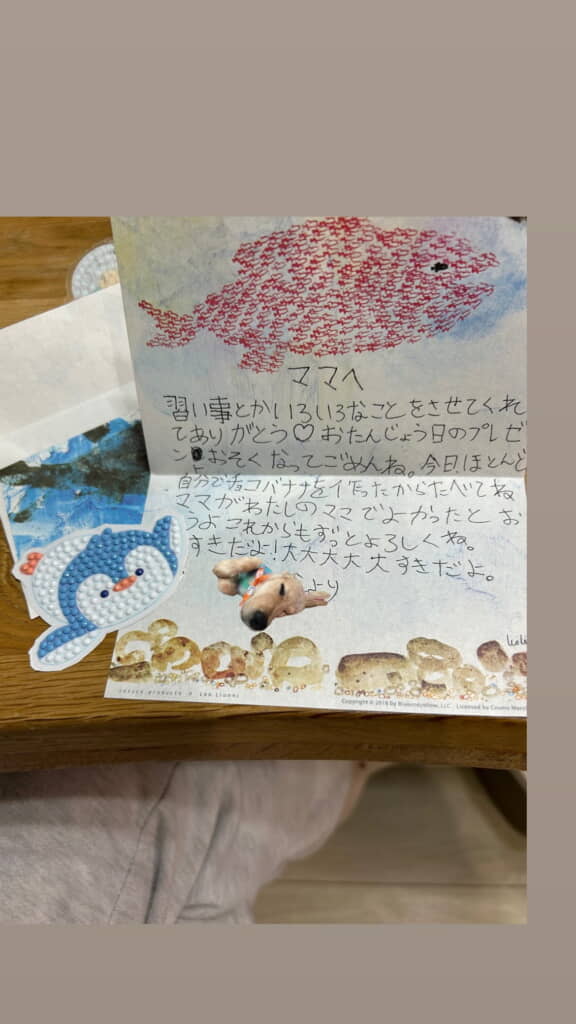 ママへ
習い事とかいろいろなことをさせてくれ
てありがとう♡おたんじょう日のプレゼ
ントおそくなってごめんね。今日ほとんど
自分でチョコバナナを作ったからたべてね
ママがわたしのママでよかったと お
うよ これからもずっとよろしくね。
すきだよ!大大大大大すきだよ。
より
cosmos products © Leo Lionni
Copyright © 2018 by Blueandyellow, LLC Licensed by Cosmo Merch